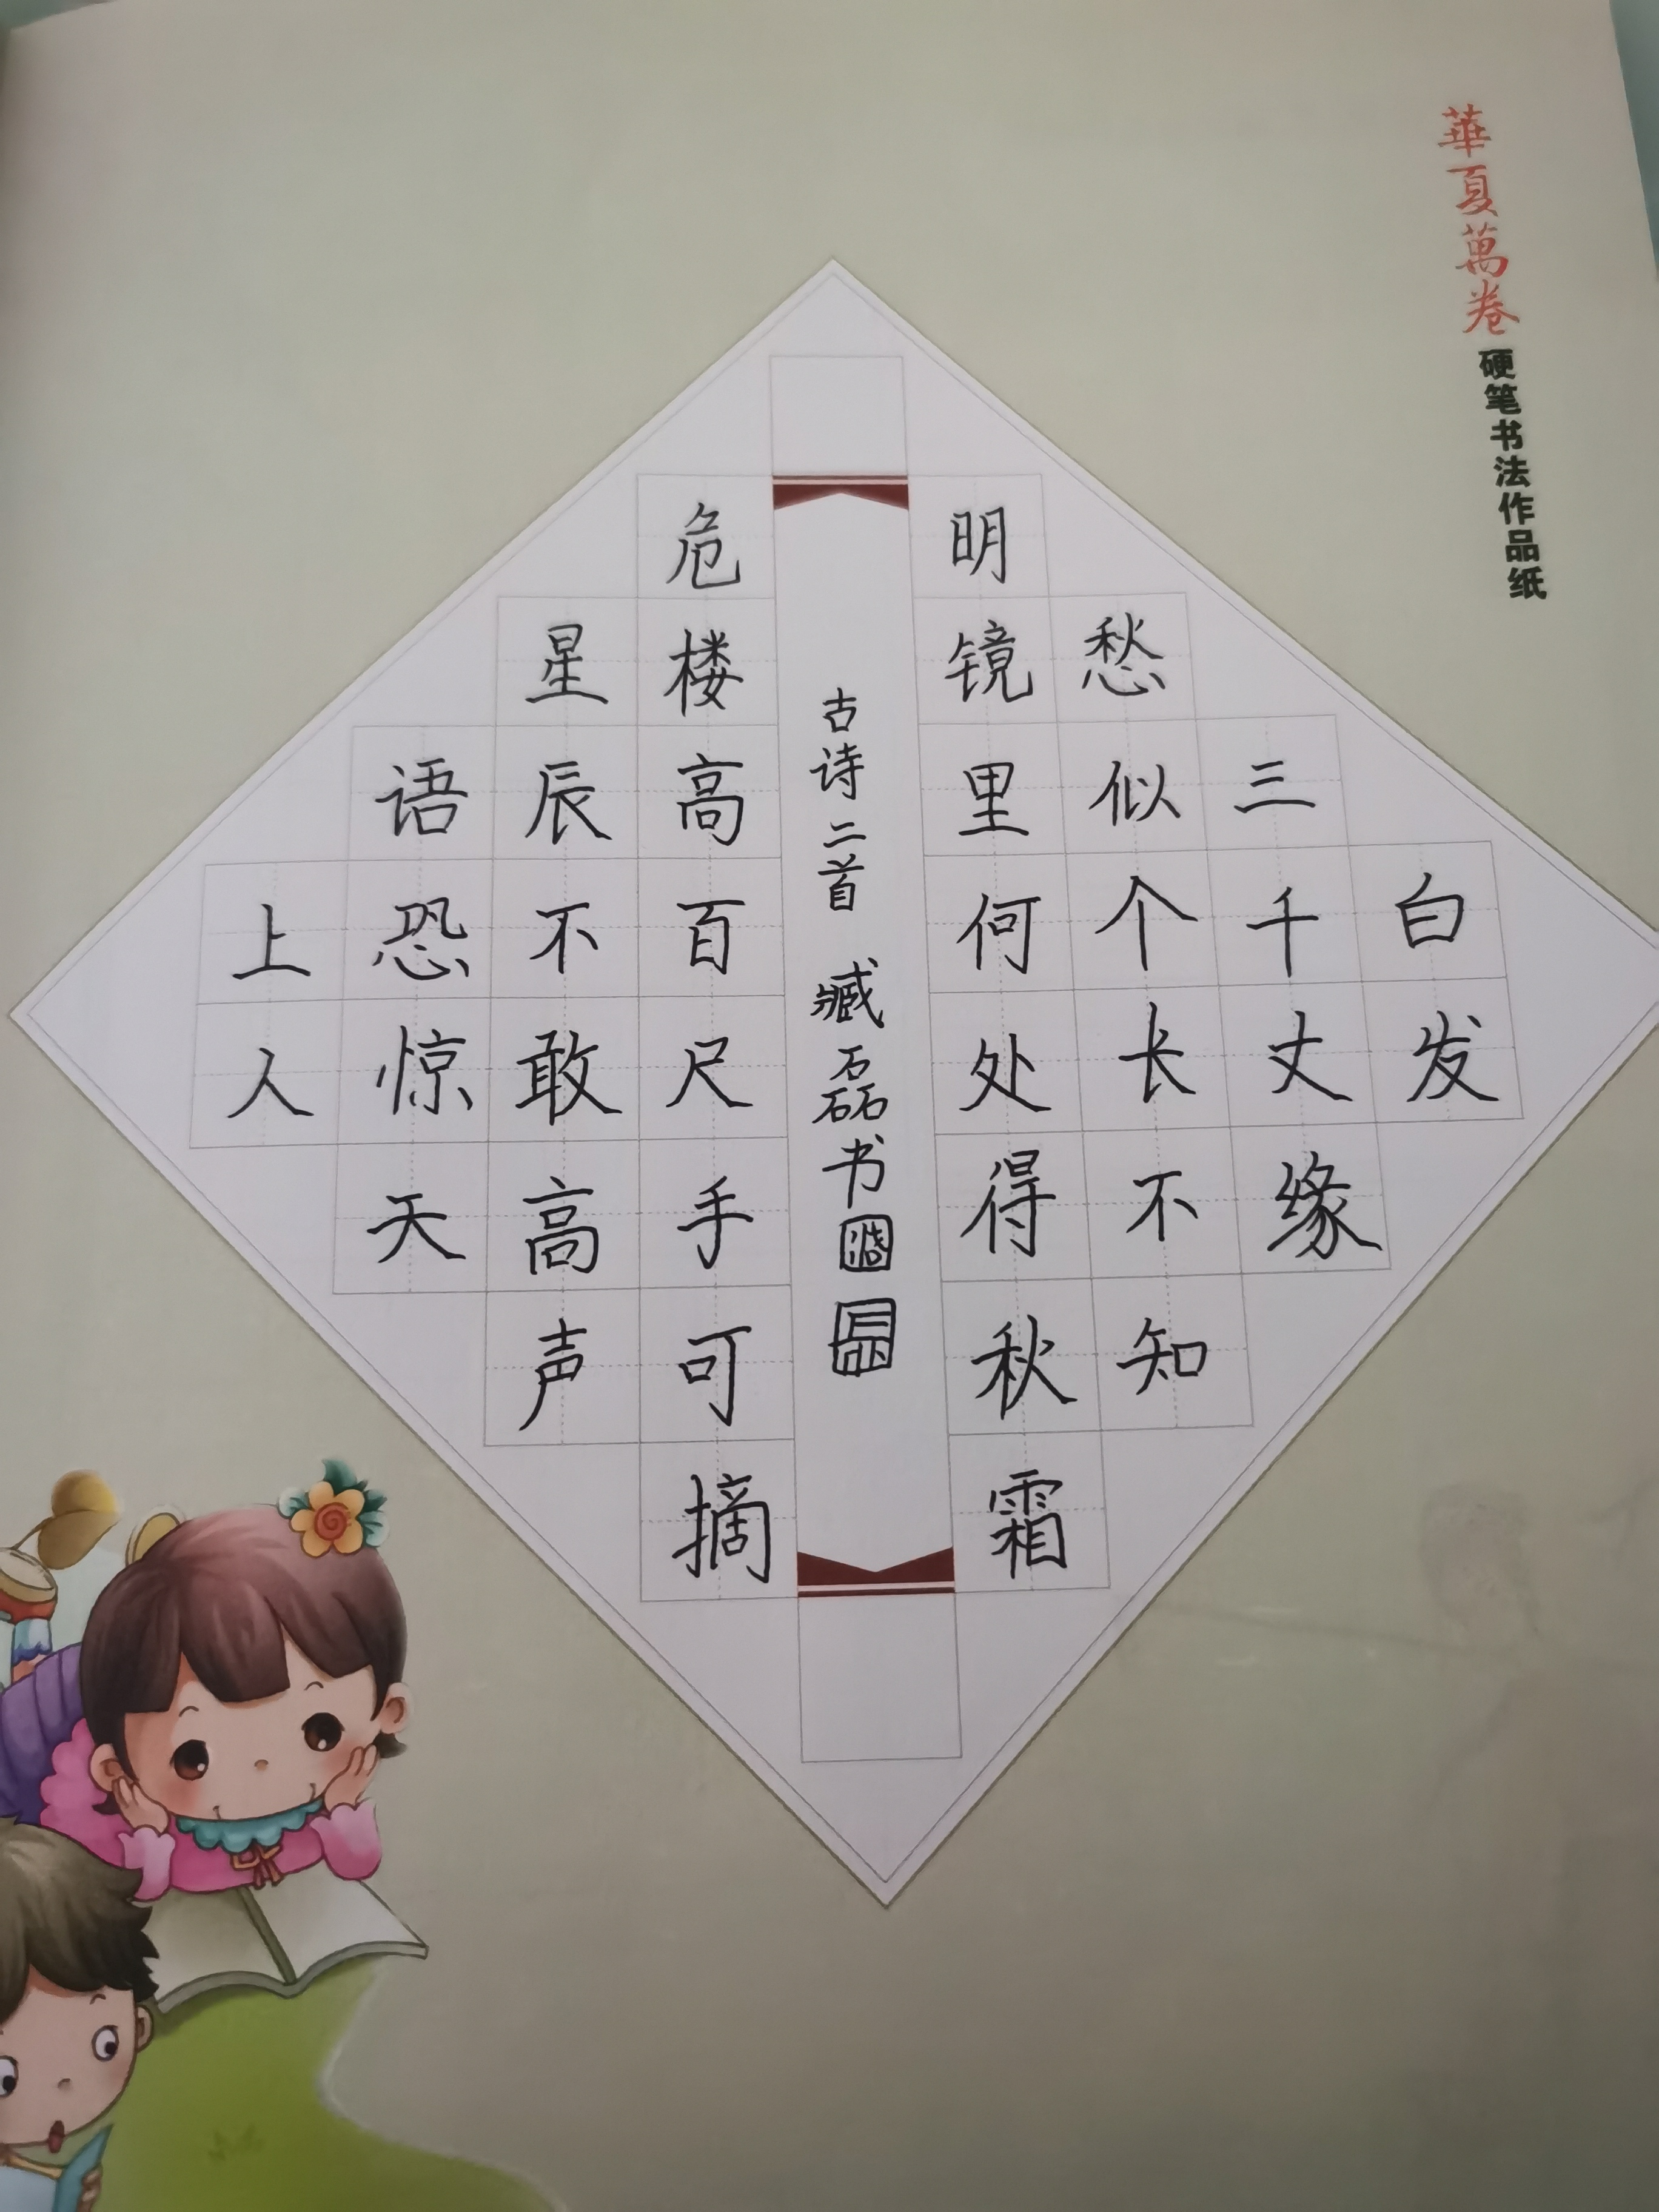 華夏萬卷硬笔书法作品纸
白发
三千丈缘
愁似个长不知
明镜里何处得秋霜
古诗二首 臧磊书
危楼高百尺手可摘
星辰不敢高声
语恐惊天
上人